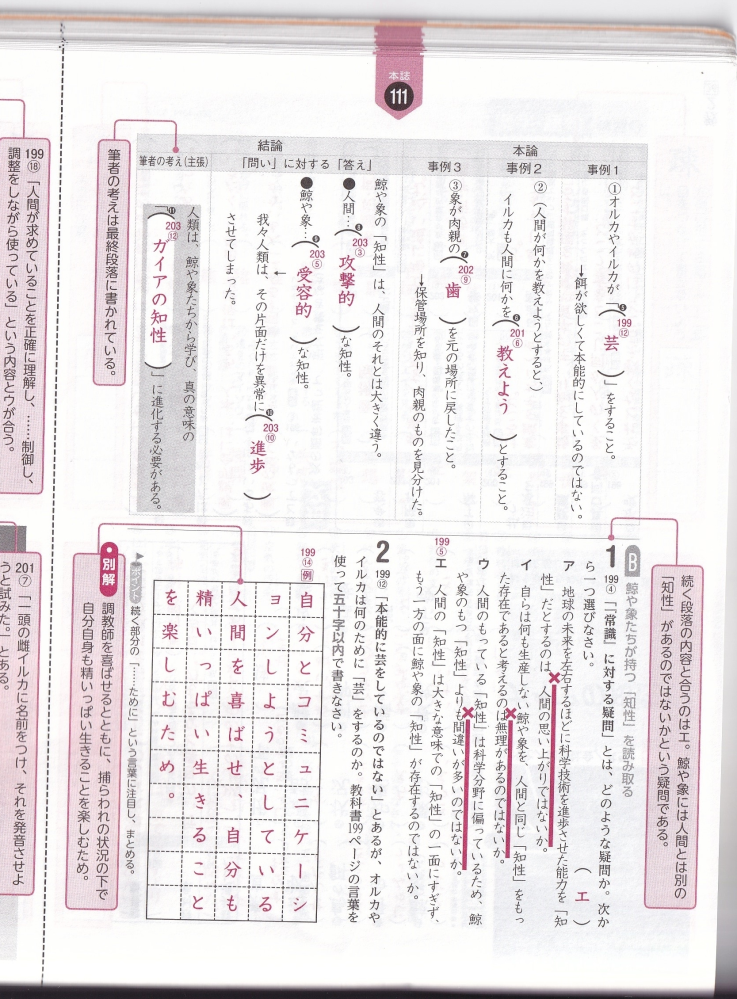 本誌
111
本論
事例1
①オルカやイルカが「(❺199⑫ 芸)」をすること。
→餌が欲しくて本能的にしているのではない。
事例2
②(人間が何かを教えようとすると、)
イルカも人間に何かを(❻201⑥ 教えよう)とすること。
事例3
③象が肉親の(❼202⑨ 歯)を元の場所に戻したこと。
→保管場所を知り、肉親のものを見分けた。
結論
「問い」に対する「答え」
鯨や象の「知性」は、人間のそれとは大きく違う。
●人間…(❽203③ 攻撃的)な知性。
●鯨や象…(❾203⑤ 受容的)な知性。
←
我々人類は、その片面だけを異常に(❿203⑩ 進歩)
させてしまった。
筆者の考え(主張)
人類は、鯨や象たちから学び、真の意味の
「(⓫203⑫ ガイアの知性)」に進化する必要がある。
筆者の考えは最終段落に書かれている。
199⑱「人間が求めていることを正確に理解し、……制御し、
調整をしながら使っている」という内容とウが合う。
続く段落の内容と合うのはエ。鯨や象には人間とは別の
「知性」があるのではないかという疑問である。
B 鯨や象たちが持つ「知性」を読み取る
1 199④「『常識』に対する疑問」とは、どのような疑問か。次か
ら一つ選びなさい。
(エ)
ア 地球の未来を左右するほどに科学技術を進歩させた能力を「知
性」だとするのは、人間の思い上がりではないか。
イ 自らは何も生産しない鯨や象を、人間と同じ「知性」をもっ
た存在であると考えるのは無理があるのではないか。
ウ 人間のもっている「知性」は科学分野に偏っているため、鯨
や象のもつ「知性」よりも間違いが多いのではないか。
199⑤
エ 人間の「知性」は大きな意味での「知性」の一面にすぎず、
もう一方の面に鯨や象の「知性」が存在するのではないか。
2 199⑫「本能的に芸をしているのではない」とあるが、オルカや
イルカは何のために「芸」をするのか。教科書199ページの言葉を
使って五十字以内で書きなさい。
199⑭
例
自分とコミュニケーシ
ョンしようとしている
人間を喜ばせ、自分も
精いっぱい生きること
を楽しむため。
▶ポイント 続く部分の「……ために」という言葉に注目し、まとめる。
●別解
調教師を喜ばせるとともに、捕らわれの状況の下で
自分自身も精いっぱい生きることを楽しむため。
201⑦「一頭の雌イルカに名前をつけ、それを発音させよ
うと試みた。」とある。